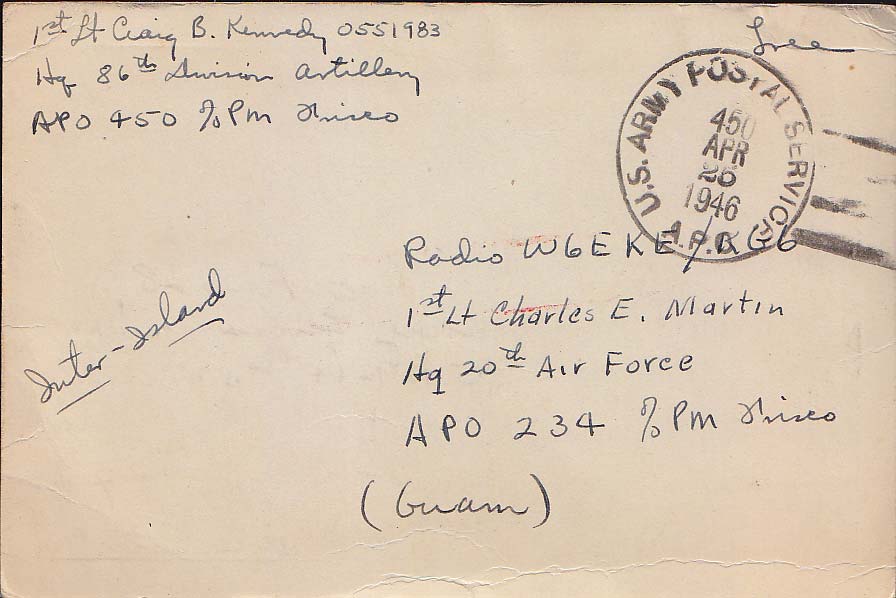 1st Lt Craig B. Kennedy 0551983
Hq 86th Division Artillery
APO 450 % PM Frisco
Free
U.S. ARMY POSTAL SERVICE
450
APR
26
1946
A.P.O.
Radio W6EKE/KG6
1st Lt Charles E. Martin
Hq 20th Air Force
APO 234 % PM Frisco
(Guam)
Inter-Island